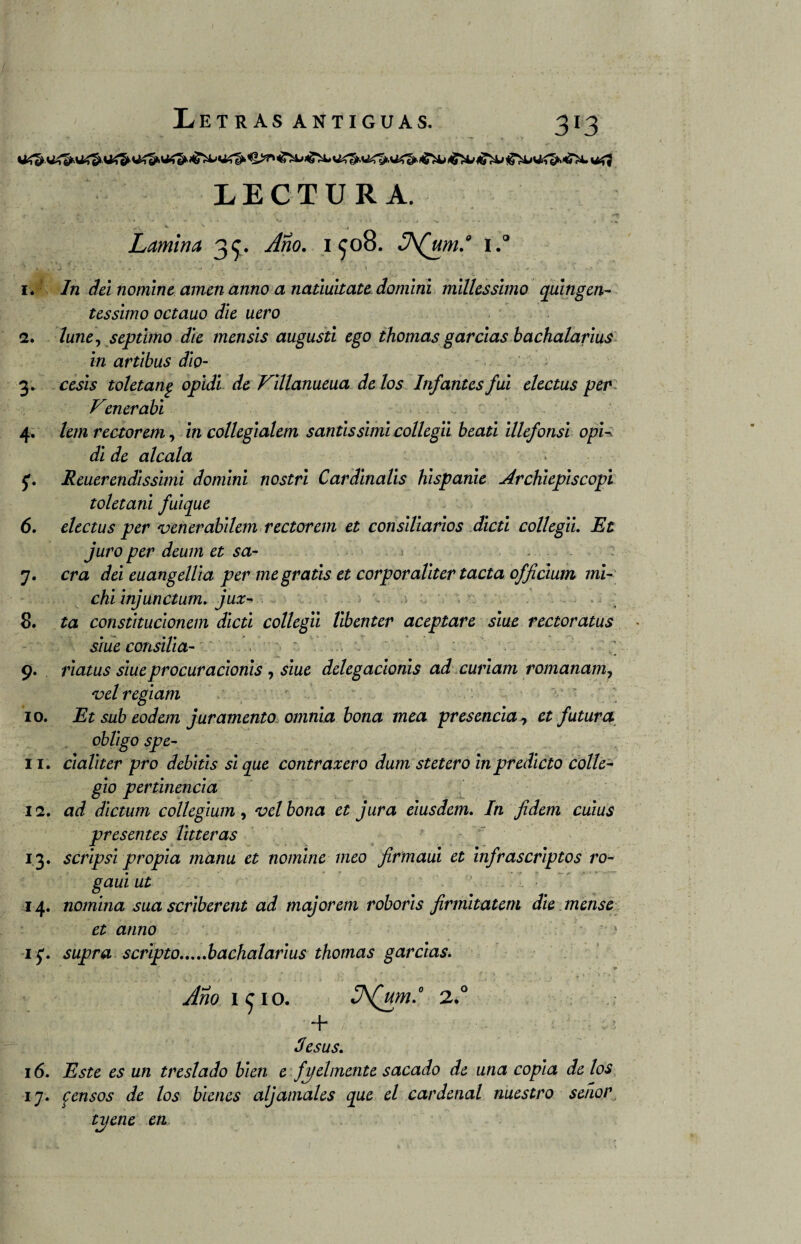 LETRAS ANTIGUAS. 313
LECTURA.
Lamina 35. Año. 1508. Num.º 1.º
1. In dei nomine amen anno a natiuitate domini millessimo quingen-
tessimo octauo die uero
2. lune, septimo die mensis augusti ego thomas garcias bachalarius
in artibus dio-
3. cesis toletanę opidi de Villanueua de los Infantes fui electus per
Venerabi
4. lem rectorem, in collegialem santissimi collegii beati illefonsi opi-
di de alcala
5. Reuerendissimi domini nostri Cardinalis hispanie Archiepiscopi
toletani fuique
6. electus per venerabilem rectorem et consiliarios dicti collegii. Et
juro per deum et sa-
7. cra dei euangellia per me gratis et corporaliter tacta officium mi-
chi injunctum. jux-
8. ta constitucionem dicti collegii libenter aceptare siue rectoratus
siue consilia-
9. riatus siue procuracionis, siue delegacionis ad curiam romanam,
vel regiam
10. Et sub eodem juramento omnia bona mea presencia, et futura
obligo spe-
11. cialiter pro debitis si que contraxero dum stetero in predicto colle-
gio pertinencia
12. ad dictum collegium, vel bona et jura eiusdem. In fidem cuius
presentes litteras
13. scripsi propia manu et nomine meo firmaui et infrascriptos ro-
gaui ut
14. nomina sua scriberent ad majorem roboris firmitatem die mense
et anno
15. supra scripto.....bachalarius thomas garcias.
Año 1510. Num.º 2.º
+
Jesus.
16. Este es un treslado bien e fyelmente sacado de una copia de los
17. çensos de los bienes aljamales que el cardenal nuestro señor
tyene en